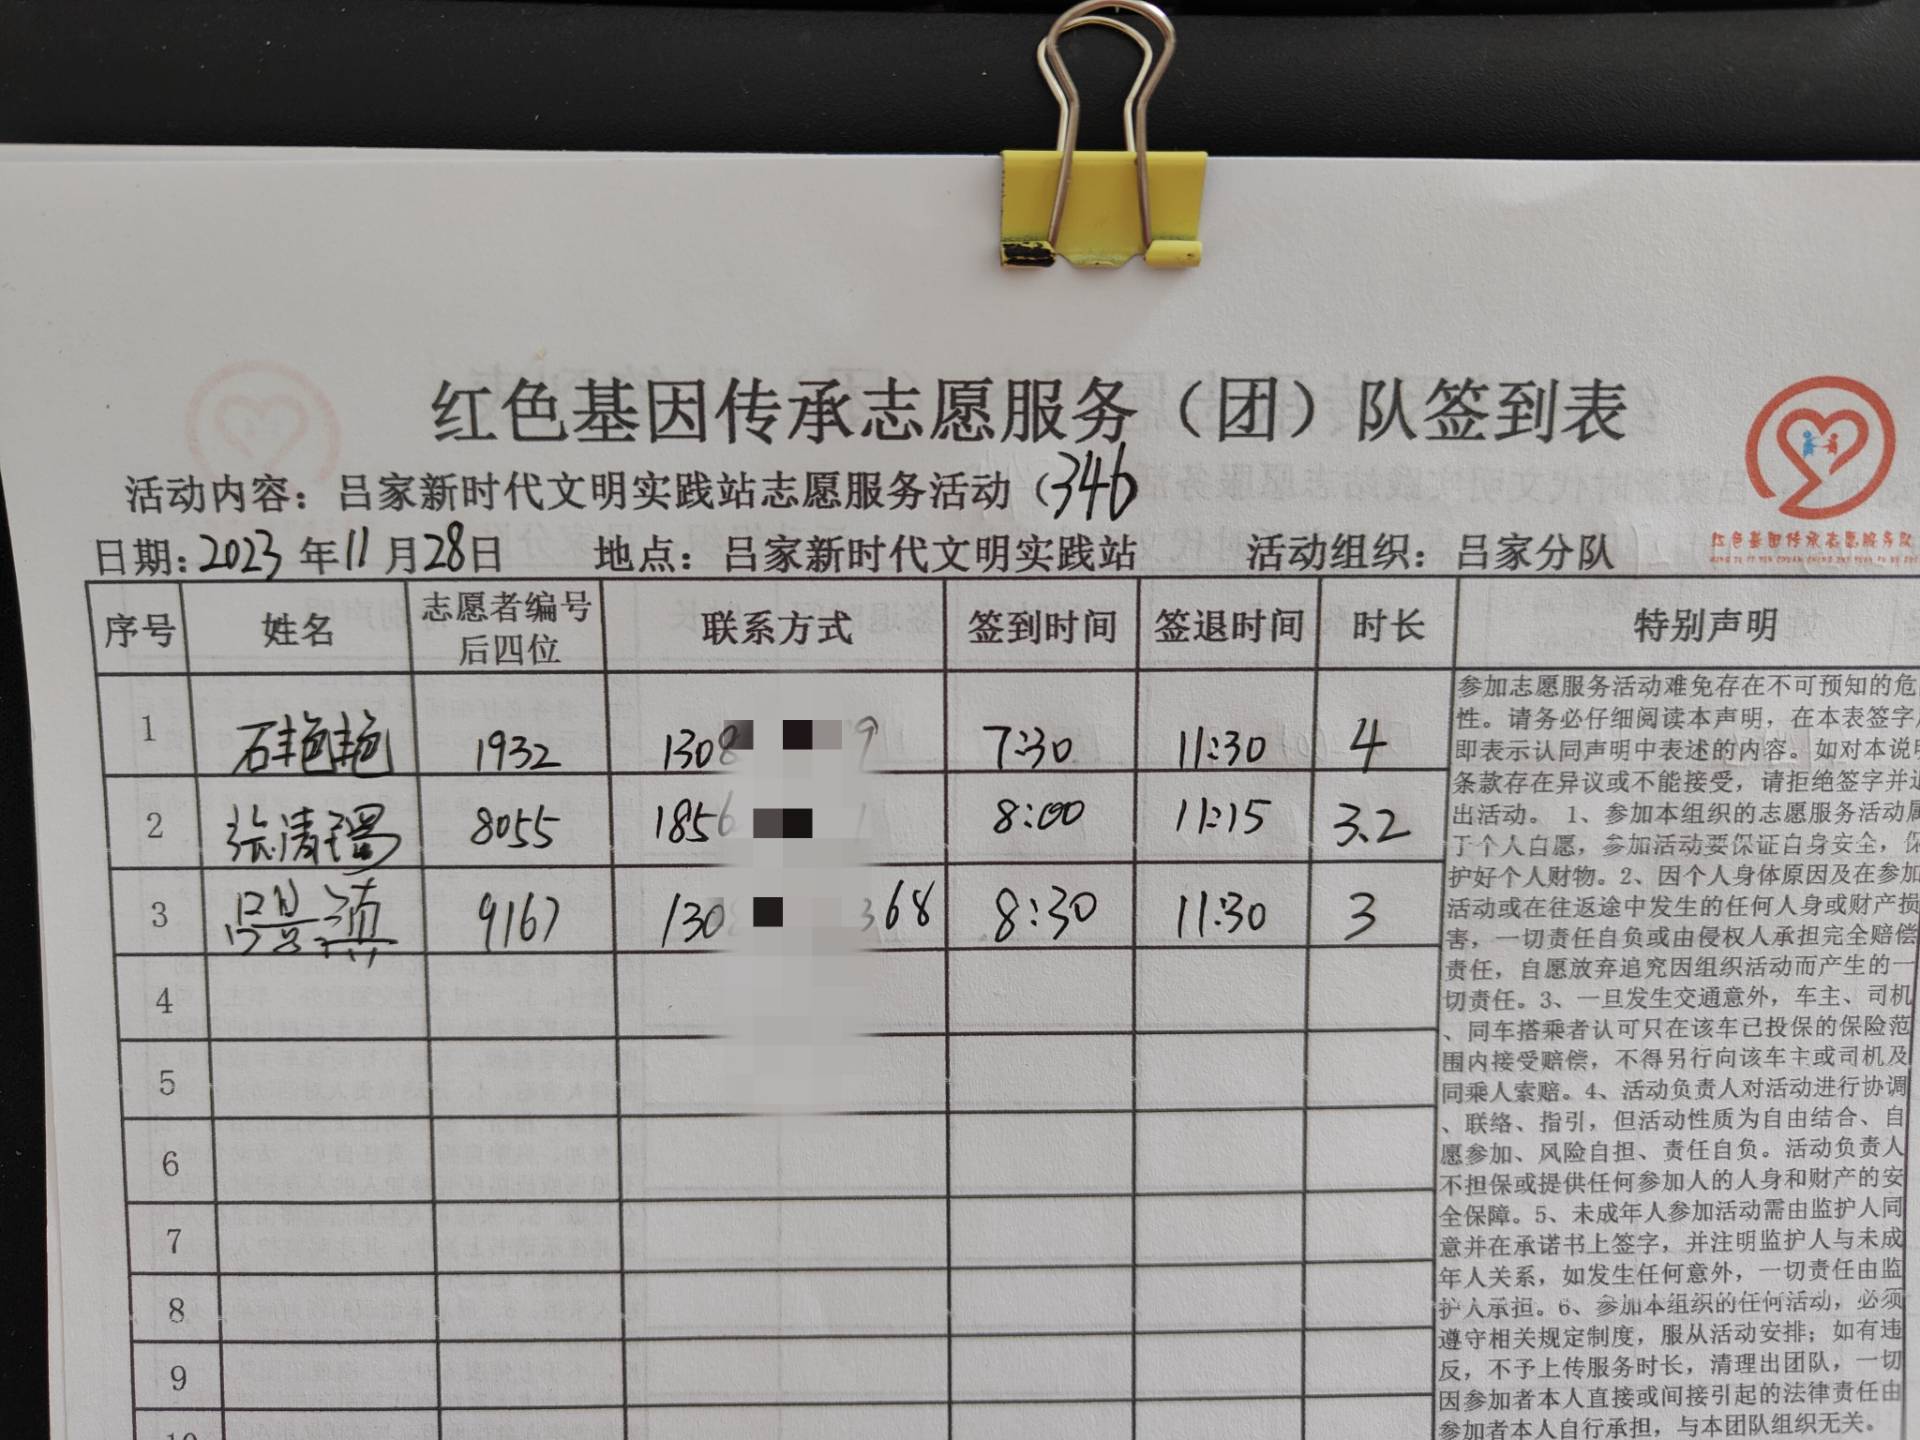 红色基因传承志愿服务（团）队签到表
活动内容：吕家新时代文明实践站志愿服务活动（346
日期：2023年11月28日 地点：吕家新时代文明实践站 活动组织：吕家分队
红色基因传承志愿服务队
序号 姓名 志愿者编号后四位 联系方式 签到时间 签退时间 时长 特别声明
1 石艳艳 1932 1308 9 7:30 11:30 4
2 张清 8055 1856 1 8:00 11:15 3.2
3 9167 130 368 8:30 11:30 3
4
5
6
7
8
9
10
参加志愿服务活动难免存在不可预知的危
性。请务必仔细阅读本声明，在本表签字
即表示认同声明中表述的内容。如对本说明
条款存在异议或不能接受，请拒绝签字并退
出活动。 1、参加本组织的志愿服务活动属
于个人自愿，参加活动要保证自身安全，保
护好个人财物。2、因个人身体原因及在参加
活动或在往返途中发生的任何人身或财产损
害，一切责任自负或由侵权人承担完全赔偿
责任，自愿放弃追究因组织活动而产生的一
切责任。3、一旦发生交通意外，车主、司机
、同车搭乘者认可只在该车已投保的保险范
围内接受赔偿，不得另行向该车主或司机及
同乘人索赔。4、活动负责人对活动进行协调
、联络、指引，但活动性质为自由结合、自
愿参加、风险自担、责任自负。活动负责人
不担保或提供任何参加人的人身和财产的安
全保障。5、未成年人参加活动需由监护人同
意并在承诺书上签字，并注明监护人与未成
年人关系，如发生任何意外，一切责任由监
护人承担。6、参加本组织的任何活动，必须
遵守相关规定制度，服从活动安排；如有违
反，不予上传服务时长，清理出团队，一切
因参加者本人直接或间接引起的法律责任由
参加者本人自行承担，与本团队组织无关。